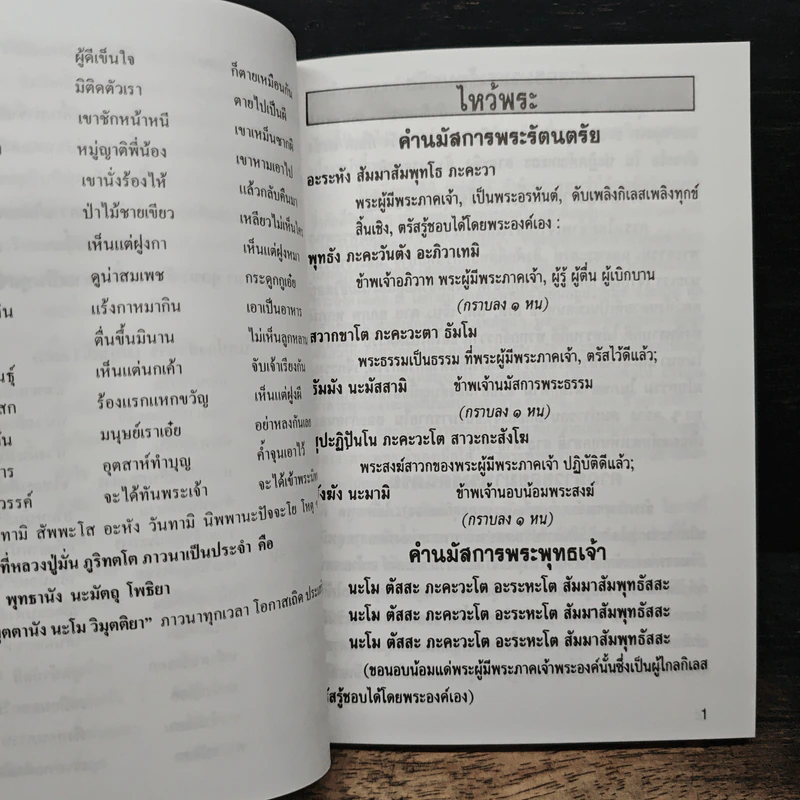 ผู้ดีเข็นใจ ก็ตายเหมือนกัน
มิติดตัวเรา ตายไปเป็นผี
เขาชักหน้าหนี เขาเหม็นซากผี
หมู่ญาติพี่น้อง เขาหามเอาไป
เขานั่งร้องไห้ แล้วกลับคืนมา
ป่าไม้ชายเขียว เหลียวไม่เห็นใคร
เห็นแต่ฝูงกา เห็นแต่ฝูงหมา
ดูน่าสมเพช กระดูกกูเอ๋ย
แร้งกาหมากิน เอาเป็นอาหาร
ตื่นขึ้นมินาน ไม่เห็นลูกหลาน
เห็นแต่นกเค้า จับเจ้าเรียงกัน
ร้องแรกแหกขวัญ เห็นแต่ฝูงผี
มนุษย์เราเอ๋ย อย่าหลงกันเลย
อุตสาห์ทำบุญ ค้ำจุนเอาไว้
จะได้ทันพระเจ้า จะได้เข้า
สัพพะโส อะหัง วันทามิ นิพพานะปัจจะโย โหตุ
ที่หลวงปู่มั่น ภูริทตโต ภาวนาเป็นประจำ คือ
พุทธานัง นะมัตถุ โพธิยา
นะโม วิมุตติยา” ภาวนาทุกเวลา โอกาสเถิด
ไหว้พระ
คำนมัสการพระรัตนตรัย
อะระหัง สัมมาสัมพุทโธ ภะคะวา
พระผู้มีพระภาคเจ้า, เป็นพระอรหันต์, ดับเพลิงกิเลสเพลิงทุกข์
สิ้นเชิง, ตรัสรู้ชอบได้โดยพระองค์เอง :
พุทธัง ภะคะวันตัง อะภิวาเทมิ
ข้าพเจ้าอภิวาท พระผู้มีพระภาคเจ้า, ผู้รู้ ผู้ตื่น ผู้เบิกบาน
(กราบลง ๑ หน)
สวากขาโต ภะคะวะตา ธัมโม
พระธรรมเป็นธรรม ที่พระผู้มีพระภาคเจ้า, ตรัสไว้ดีแล้ว;
ธัมมัง นะมัสสามิ ข้าพเจ้านมัสการพระธรรม
(กราบลง ๑ หน)
สุปะฏิปันโน ภะคะวะโต สาวะกะสังโฆ
พระสงฆ์สาวกของพระผู้มีพระภาคเจ้า ปฏิบัติดีแล้ว;
สังฆัง นะมามิ ข้าพเจ้านอบน้อมพระสงฆ์
(กราบลง ๑ หน)
คำนมัสการพระพุทธเจ้า
นะโม ตัสสะ ภะคะวะโต อะระหะโต สัมมาสัมพุทธัสสะ
นะโม ตัสสะ ภะคะวะโต อะระหะโต สัมมาสัมพุทธัสสะ
นะโม ตัสสะ ภะคะวะโต อะระหะโต สัมมาสัมพุทธัสสะ
(ขอนอบน้อมแด่พระผู้มีพระภาคเจ้าพระองค์นั้นซึ่งเป็นผู้ไกลกิเลส
ตรัสรู้ชอบได้โดยพระองค์เอง)
1